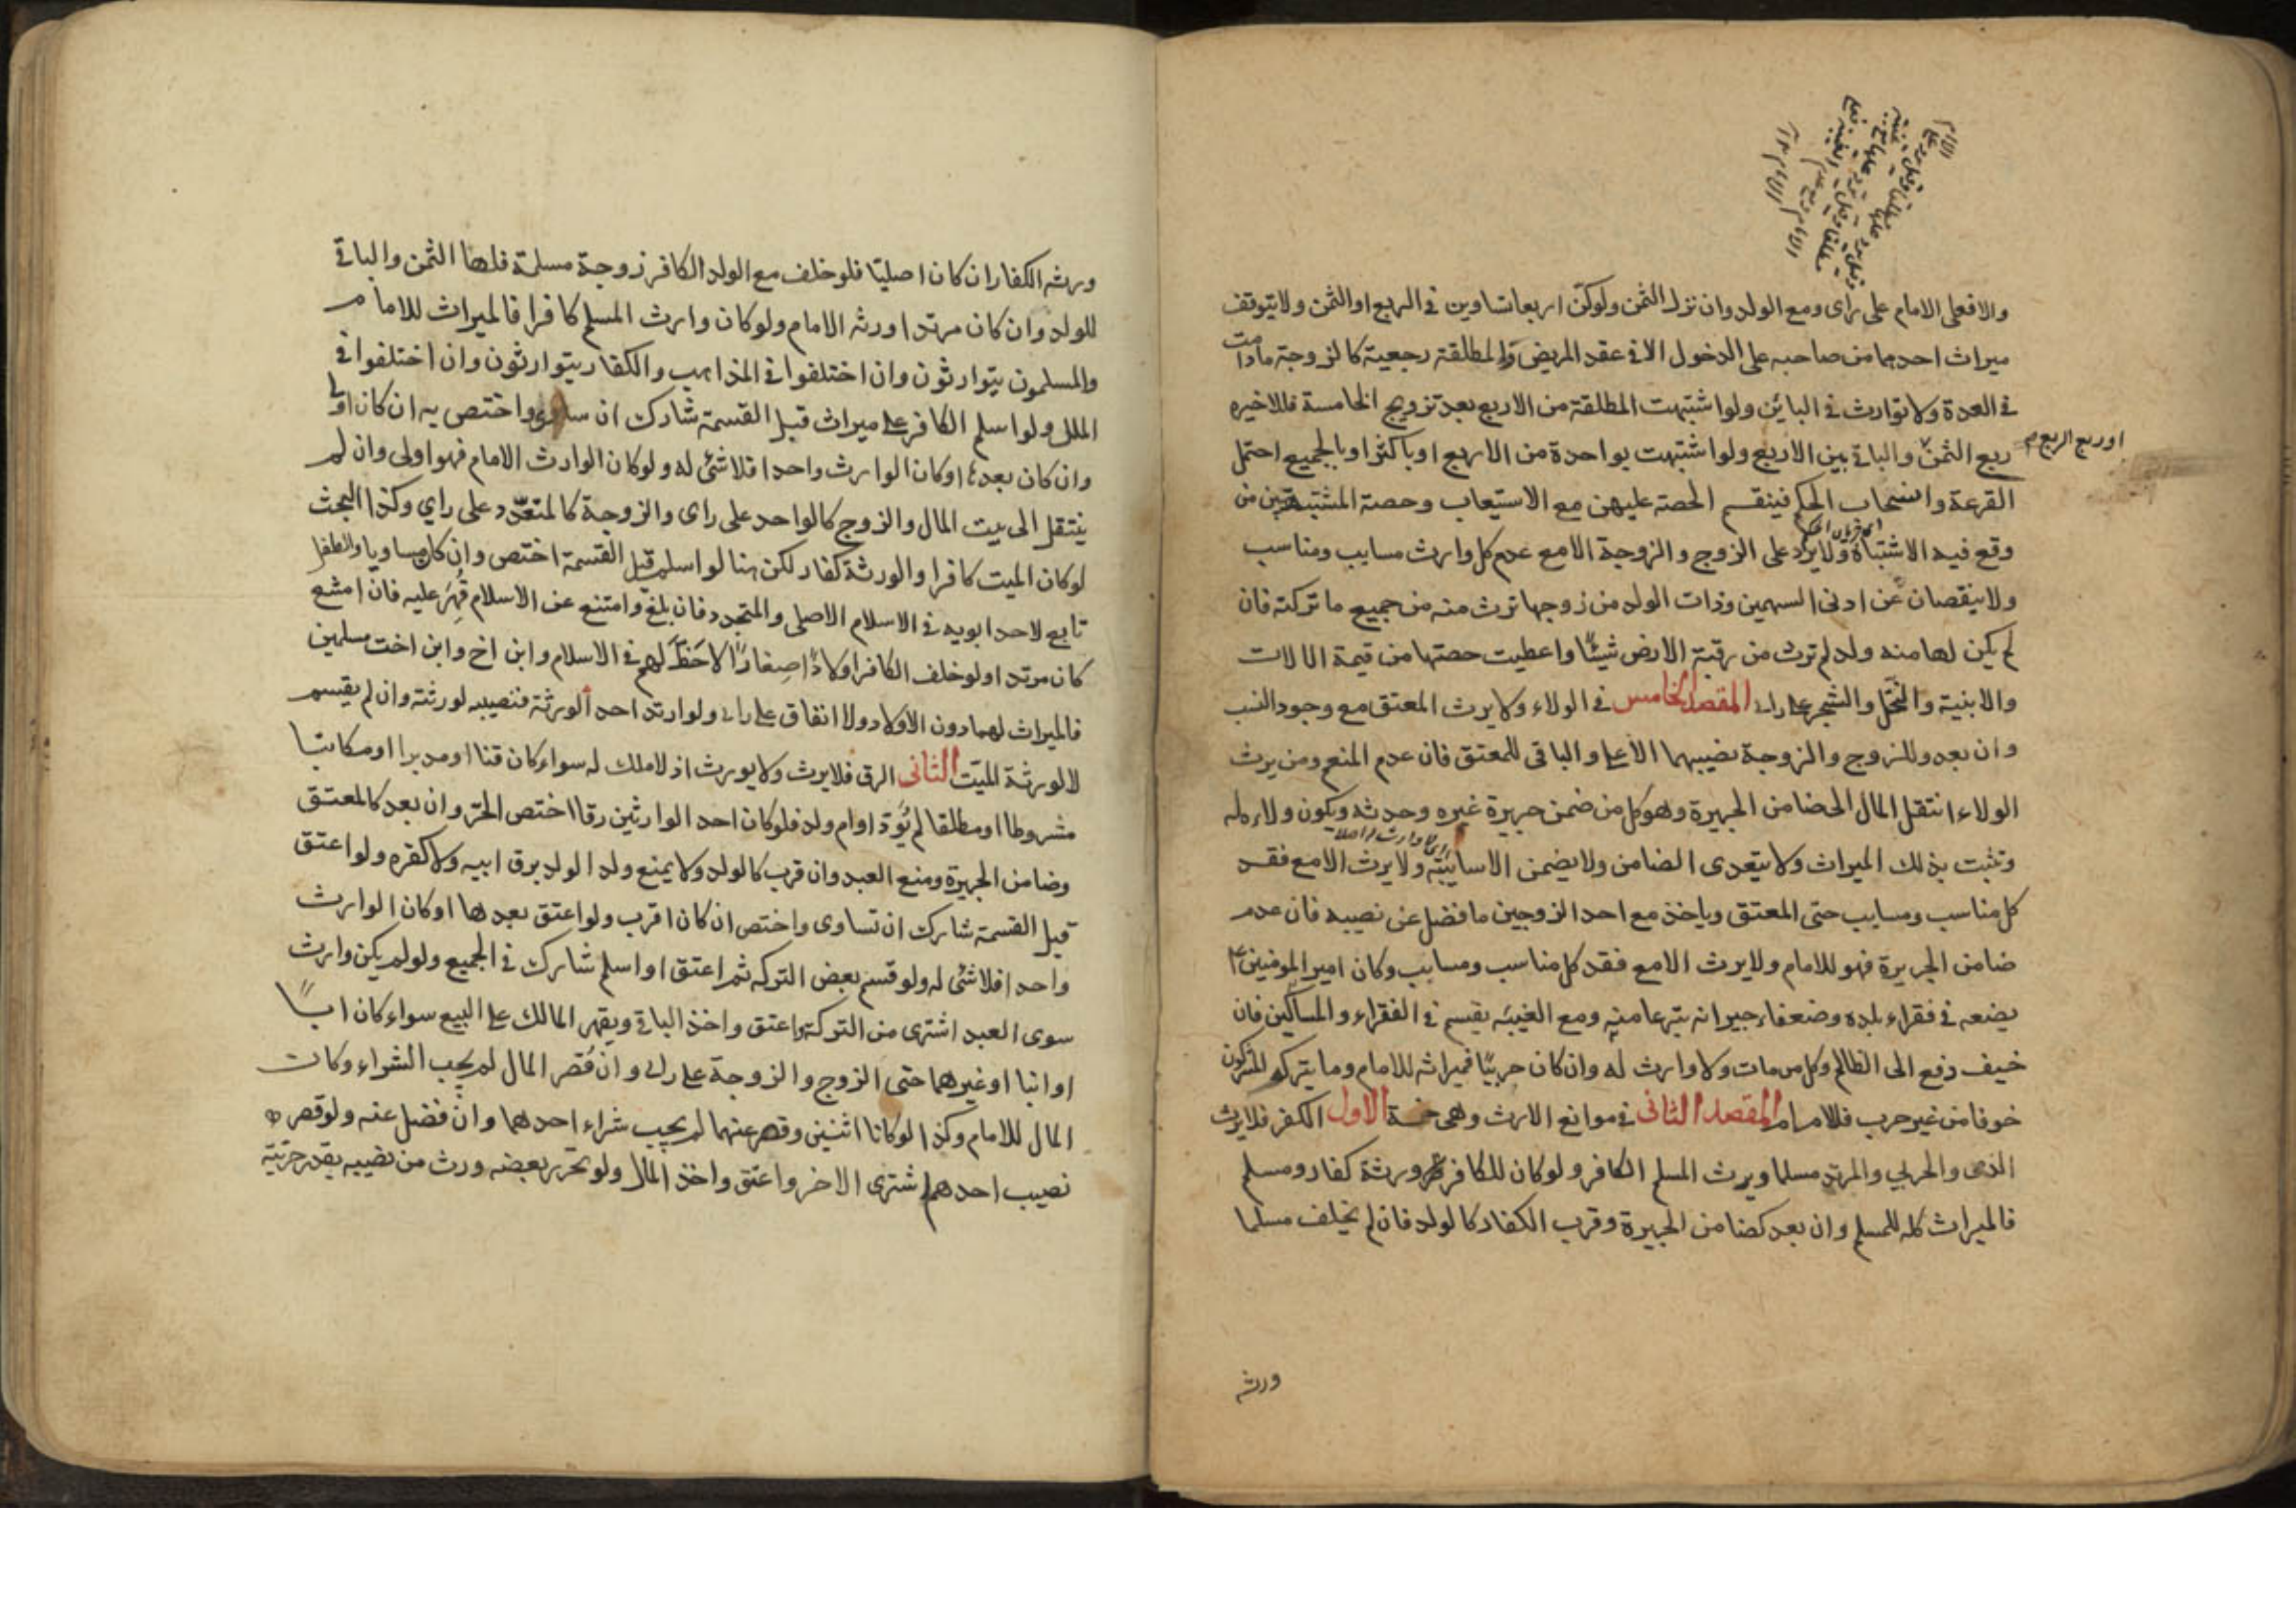 والا فعلى الامام على راى ومع الولد وان نزل الثمن ولو كن اربعا تساوين فى الربع او الثمن ولا يتوقف
ميراث احدهما من صاحبه على الدخول الا فى عقد المريض والمطلقة رجعية كالزوجة ما دامت
فى العدة ولا توارث فى البائن ولو اشتبهت المطلقة من الاربع بعد تزويج الخامسة فللاخيره
ربع الثمن والباقى بين الاربع ولو اشتبهت بواحدة من الاربع او باكثر او بالجميع احتمل
او ربع الربع
القرعة وانسحاب الحكم فينقسم الحصة عليهن مع الاستيعاب وحصة المشتبهتين من
وقع فيه الاشتباه ولا يرد على الزوج والزوجة الا مع عدم كل وارث مسابب ومناسب
ولا ينقصان عن ادنى السهمين وذات الولد من زوجها ترث منه من جميع ما تركه فان
لم يكن لها منه ولد لم ترث من رقبة الارض شيئا واعطيت حصتها من قيمة الالات
والابنية والنخل والشجر على راى المقصد الخامس فى الولاء ولا يرث المعتق مع وجود النسب
وان بعد وللزوج والزوجة نصيبهما الاعلى والباقى للمعتق فان عدم المنعم ومن يرث
الولاء انتقل المال الى ضامن الجريرة وهو كل من ضمن جريرة غيره وحدثه ويكون ولاءه له
وتثبت بذلك الميراث ولا يتعدى الضامن ولا يضمن الا سايبة ولا يرث الا مع فقد
كل مناسب ومسابب حتى المعتق وياخذ مع احد الزوجين ما فضل عن نصيبه فان عدم
ضامن الجريرة فهو للامام ولا يرث الا مع فقد كل مناسب ومسابب وكان امير المومنين ع
يضعه فى فقراء بلده وضعفاء جيرانه تبرعا منه ومع الغيبة يقسم فى الفقراء والمساكين فان
خيف دفع الى الظالم وكل من مات ولا وارث له وان كان حربيا فميراثه للامام وما يتركه المشركون
خوفا من غير حرب فللامام المقصد الثانى فى موانع الارث وهى خمسة الاول الكفر فلا يرث
الذمى والحربي والمرتد مسلما ويرث المسلم الكافر ولو كان للكافر ورثة كفار ومسلم
فالميراث كله للمسلم وان بعد كضامن الجريرة وقرب الكفار كالولد فان لم يخلف مسلما
ورثه
ورثه الكفار ان كان اصليا فلو خلف مع الولد الكافر زوجة مسلمة فلها الثمن والباقى
للولد وان كان مرتدا ورثه الامام ولو كان وارث المسلم كافرا فالميراث للامام
والمسلمون يتوارثون وان اختلفوا فى المذاهب والكفار يتوارثون وان اختلفوا فى
الملل ولو اسلم الكافر على ميراث قبل القسمة شارك ان ساوى واختص به ان كان اولى
وان كان بعدها او كان الوارث واحدا فلا شئ له ولو كان الوارث الامام فهو اولى وان لم
ينتقل الى بيت المال والزوج كالواحد على راى والزوجة كالمتعدد على راي وكذا البحث
لو كان الميت كافرا والورثة كفار لكن هنا لو اسلم قبل القسمة اختص وان كان مساويا والطفل
تابع لاحد ابويه فى الاسلام الاصلى والمتجدد فان بلغ وامتنع عن الاسلام قهر عليه فان امتنع
كان مرتدا ولو خلف الكافر اولادا صغارا لا حظ لهم فى الاسلام وابن اخ وابن اخت مسلمين
فالميراث لهما دون الاولاد ولا انفاق على راى ولو ارتد احد الورثة فنصيبه لورثته وان لم يقسم
لا لورثة الميت الثانى الرق فلا يرث ولا يورث اذ لا ملك له سواء كان قنا او مدبرا او مكاتبا
مشروطا او مطلقا لم يؤد او ام ولد فلو كان احد الوارثين رقا اختص الحر وان بعد كالمعتق
وضامن الجريرة ومنع العبد وان قرب كالولد ولا يمنع ولد الولد برق ابيه ولا كفره ولو اعتق
قبل القسمة شارك ان تساوى واختص ان كان اقرب ولو اعتق بعدها او كان الوارث
واحدا فلا شئ له ولو قسم بعض التركه ثم اعتق او اسلم شارك فى الجميع ولو لم يكن وارث
سوى العبد اشترى من التركة واعتق واخذ الباقى ويقهر المالك على البيع سواء كان ابا
او ابنا او غيرهما حتى الزوج والزوجة على راى وان قصر المال لم يجب الشراء وكان
المال للامام وكذا لو كانا اثنين وقصر عنهما لم يجب شراء احدهما وان فضل عنه ولو قصر
نصيب احدهما اشترى الاخر واعتق واخذ المال ولو تحرر بعضه ورث من نصيبه بقدر حريته